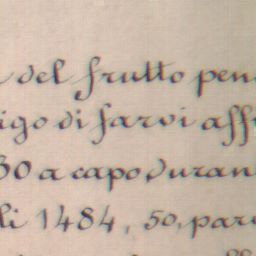 del frutto pen
igo di farvi aff
30 a capo duran
li 1484, 50, par